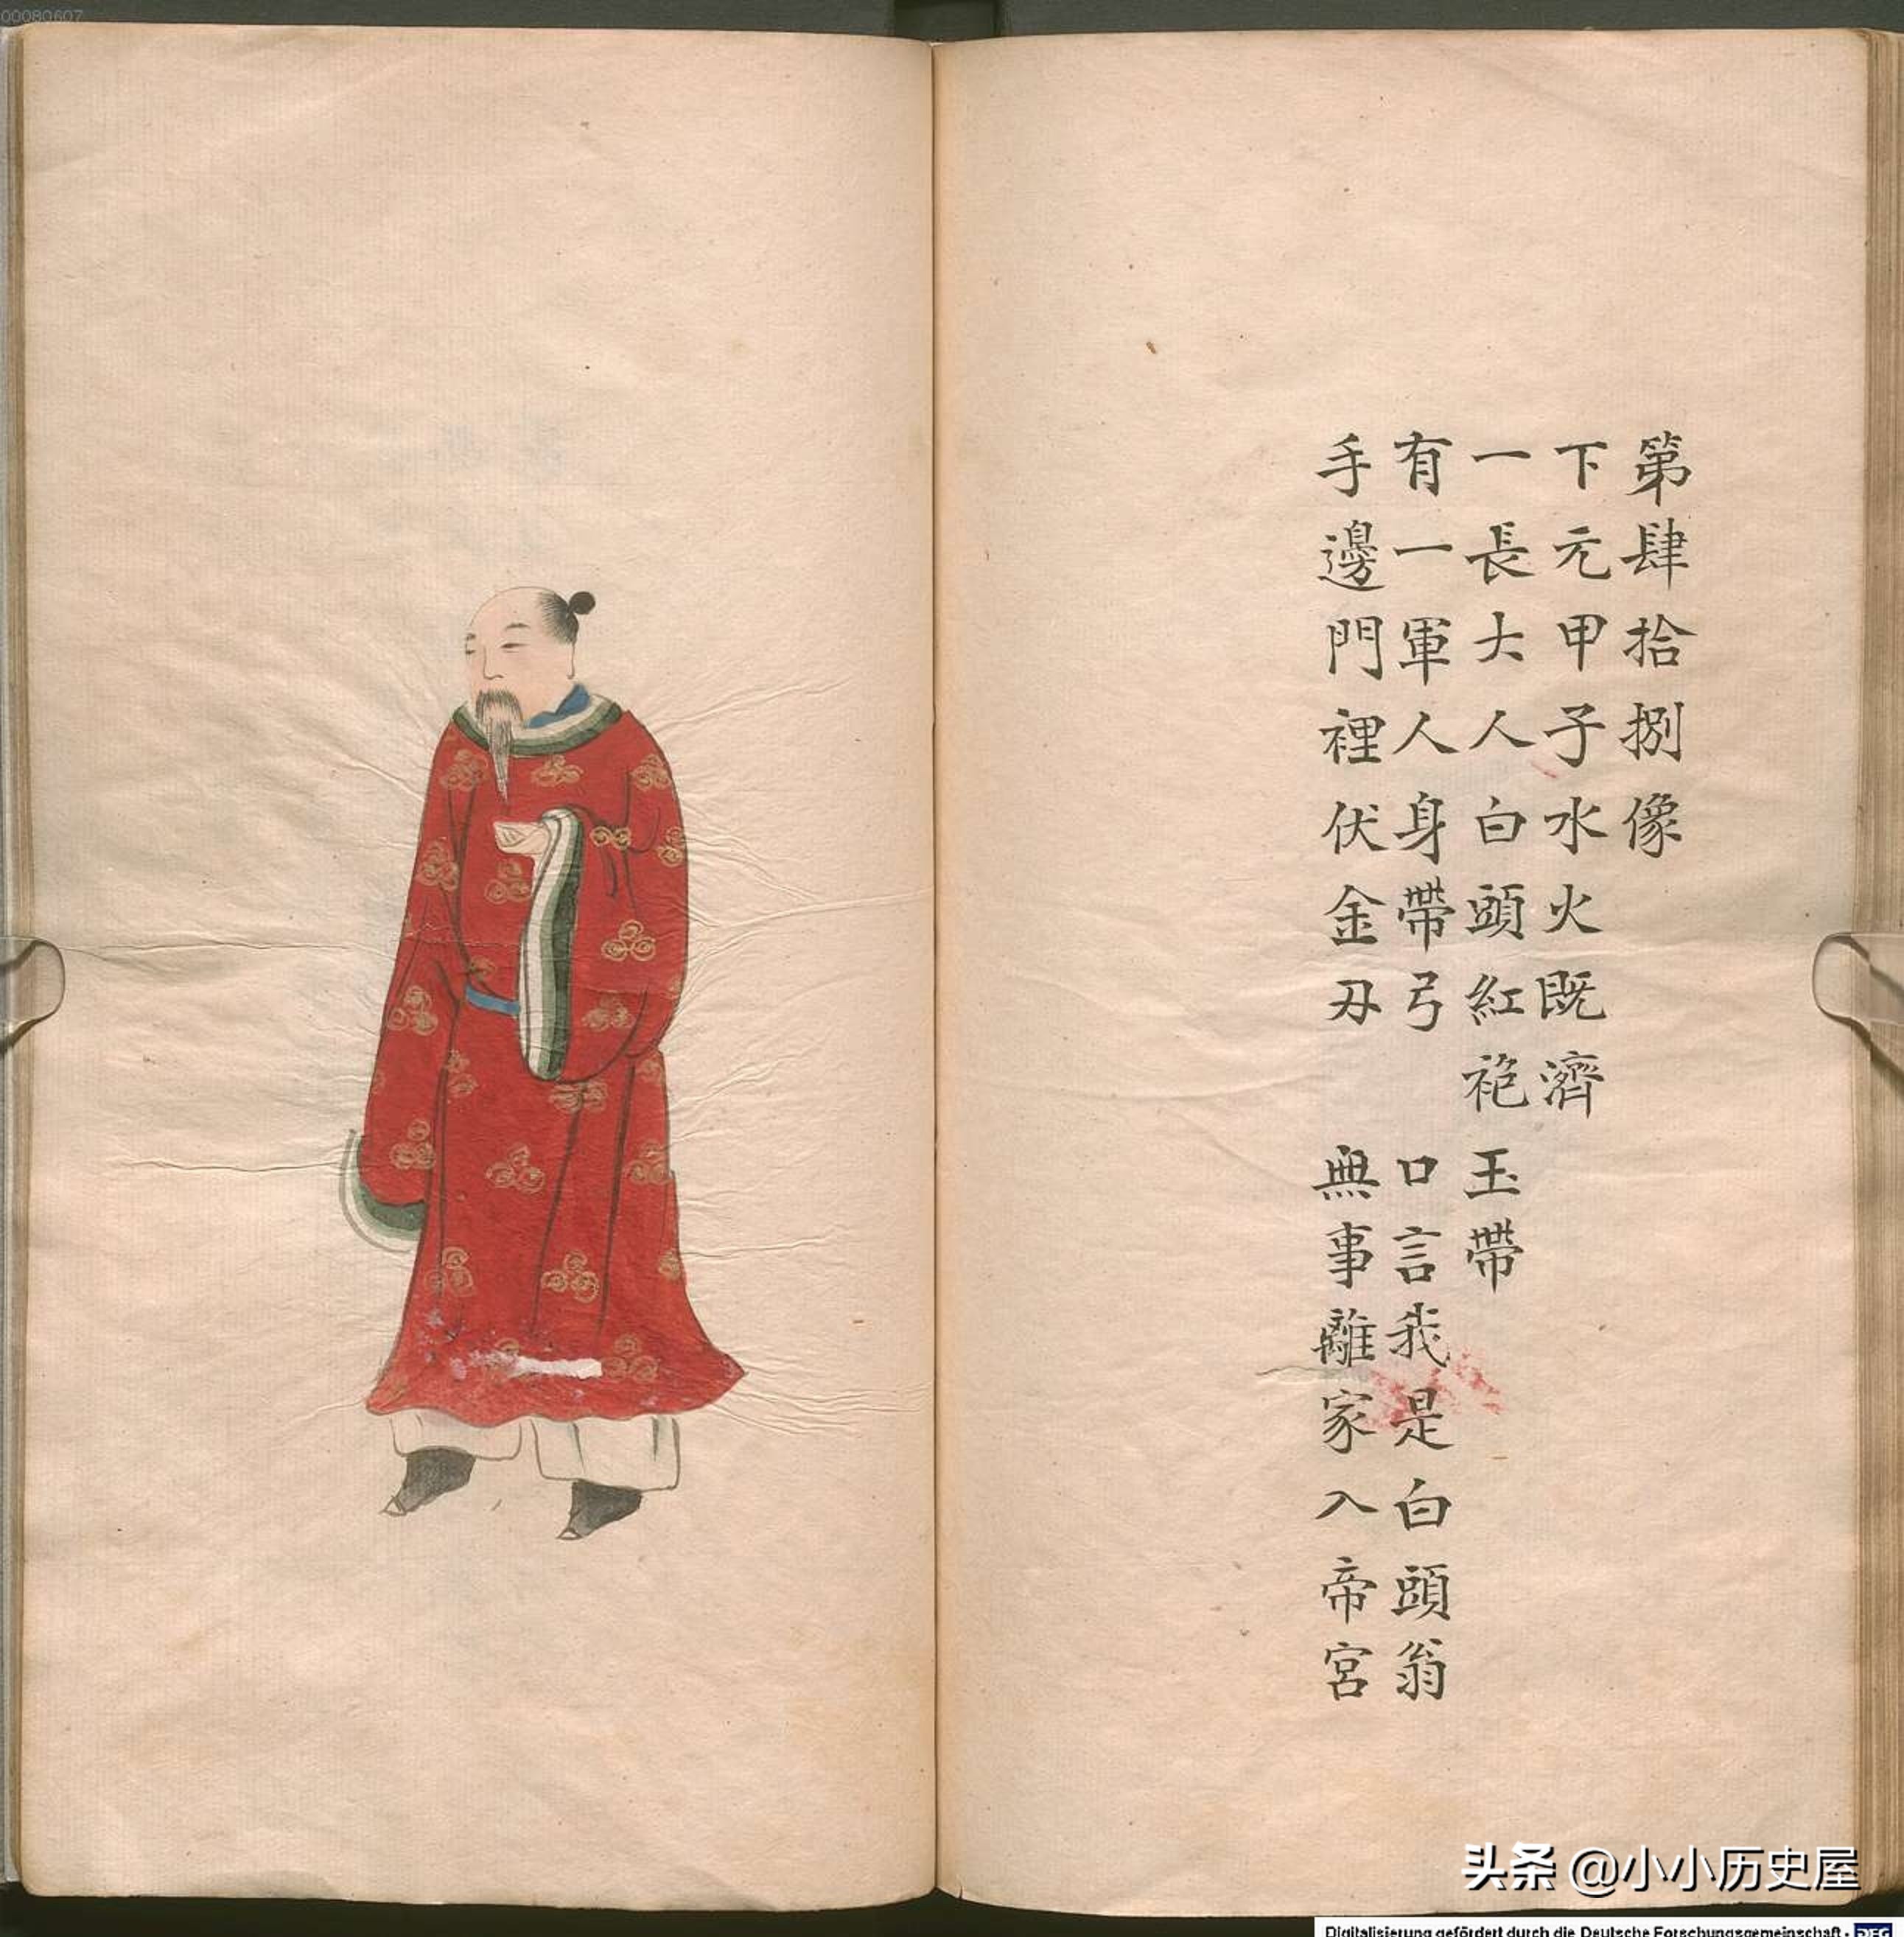 00080607
第肆拾捌像
下元甲子水火既濟
一長大人白頭紅袍 玉帶
有一軍人身帶弓 口言我是白頭翁
手邊門裡伏金刃 無事離家入帝宮
头条 @小小历史屋
Digitalisierung gefördert durch die Deutsche Forschungsgemeinschaft - DFG